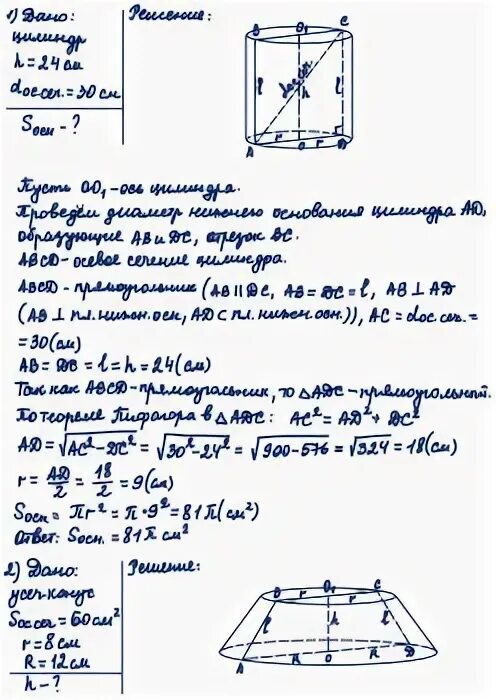 1) Дано:
цилиндр
h = 24 см
dос.сеч. = 30 см
Sосн - ?
Решение:
B O₁ C
dос.сеч.
l h l
r r
A O D
Пусть OO₁ - ось цилиндра.
Проведём диаметр нижнего основания цилиндра AD,
образующие AB и DC, отрезок BC.
ABCD - осевое сечение цилиндра.
ABCD - прямоугольник (AB || DC, AB = DC = l, AB ⊥ AD
(AB ⊥ пл. нижн. осн, AD ⊂ пл. нижн. осн.)), AC = dос.сеч. =
= 30 (см)
AB = DC = l = h = 24 (см)
Так как ABCD - прямоугольник, то △ADC - прямоугольный.
По теореме Пифагора в △ADC: AC² = AD² + DC²
AD = √AC² - DC² = √30² - 24² = √900 - 576 = √324 = 18 (см)
r = AD/2 = 18/2 = 9 (см)
Sосн = πr² = π · 9² = 81π (см²)
Ответ: Sосн. = 81π см²
2) Дано:
усеч. конус
Sос.сеч = 60 см²
r = 8 см
R = 12 см
h - ?
Решение:
B r O₁ r C
l h l
A R O R D